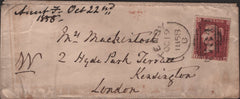 Aunt F. Oct 22nd
1858.
LEEDS
OC 19
1858
Mrs Mackintosh
2 Hyde Park Terrace
Kensington
London